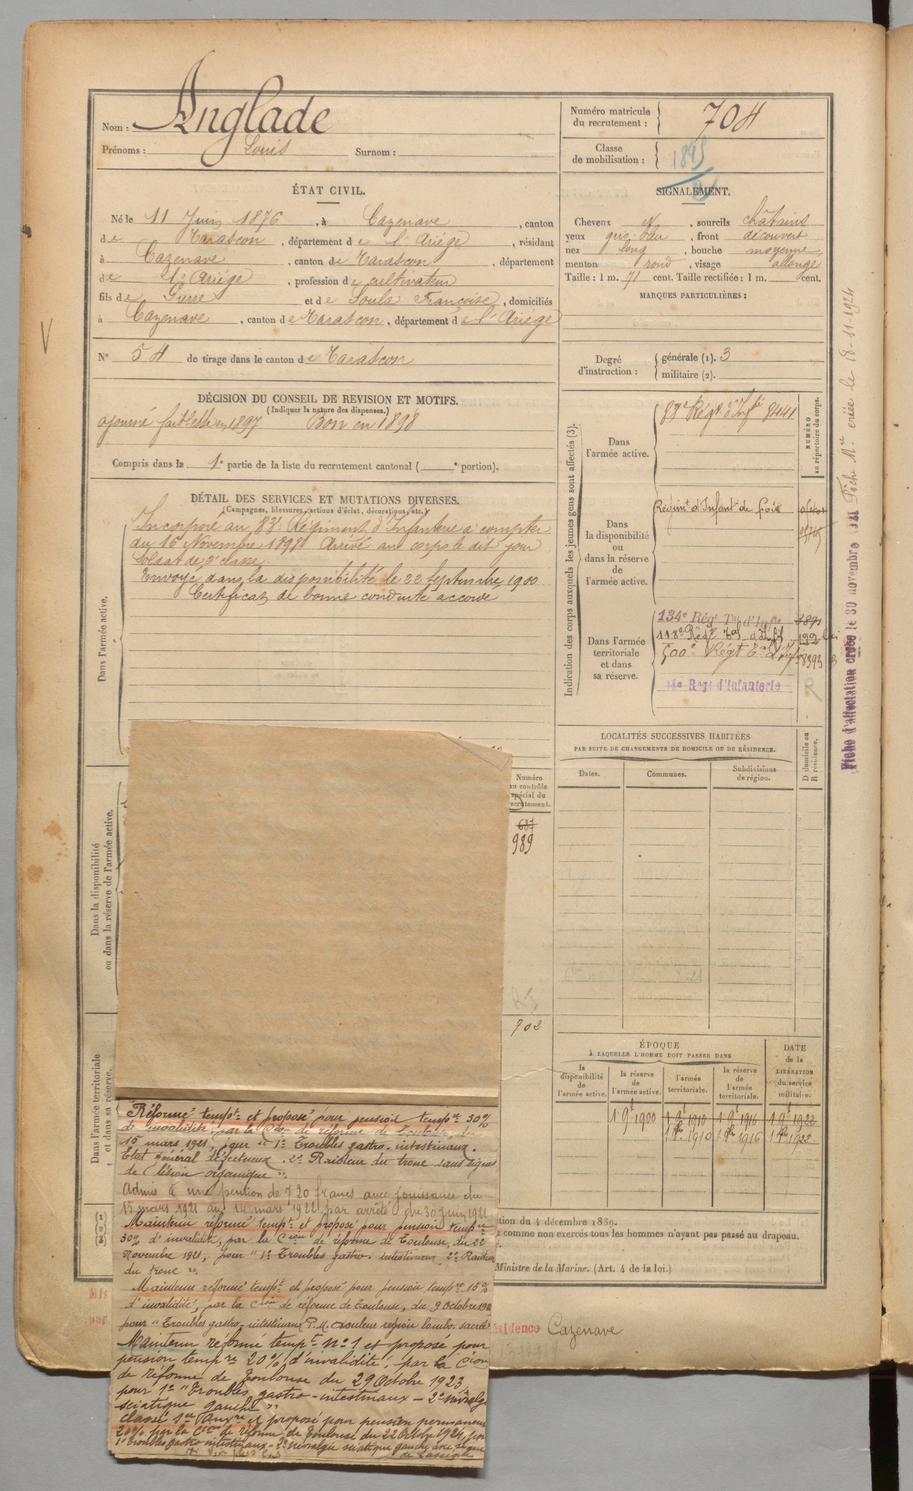 Nom : Anglade
Prénoms : Louis Surnom :
Numéro matricule du recrutement : 704
Classe de mobilisation : 1895
ÉTAT CIVIL.
Né le 11 Juin 1876, à Cazenave, canton
de Tarascon, département de l'Ariège, résidant
à Cazenave, canton de Tarascon, département
de l'Ariège, profession de cultivateur
fils de Pierre et de Soula Françoise, domiciliés
à Cazenave, canton de Tarascon, département de l'Ariège
N° 54 de tirage dans le canton de Tarascon
SIGNALEMENT.
Cheveux et, sourcils châtains
yeux gris bleu, front découvert
nez long, bouche moyenne
menton rond, visage allongé
Taille : 1 m. 71 cent. Taille rectifiée : 1 m. cent.
MARQUES PARTICULIÈRES :
Degré d'instruction : générale (1). 3
militaire (2).
DÉCISION DU CONSEIL DE REVISION ET MOTIFS.
(Indiquer la nature des dispenses.)
ajourné faiblesse en 1897 Bon en 1898
Compris dans la 1e partie de la liste du recrutement cantonal ( e portion).
DÉTAIL DES SERVICES ET MUTATIONS DIVERSES.
(Campagnes, blessures, actions d'éclat, décorations, etc.)
Incorporé au 83e Régiment d'Infanterie à compter
du 16 Novembre 1898 Arrivé au corps le dit jour
Soldat de 2e classe
Envoyé dans la disponibilité le 22 Septembre 1900
Certificat de bonne conduite accordé
Dans l'armée active.
Dans la disponibilité ou dans la réserve de l'armée active.
Dans l'armée territoriale et dans sa réserve.
Indication des corps auxquels les jeunes gens sont affectés (3).
NUMÉRO au répertoire du corps.
Dans l'armée active. 83e Régt d'Infie 8441
Dans la disponibilité ou dans la réserve de l'armée active. Régimt d'Infant de Foix
Dans l'armée territoriale et dans sa réserve. 134e Régt Tal d'Infie
118e Régt Tal d'Infie
500e Régt Tal d'Infie 8393
Régt d'Infanterie
R
Fiche d'attestation créée le 30 novembre
Fiche Mre créée le 18-11-1924
LOCALITÉS SUCCESSIVES HABITÉES
PAR SUITE DE CHANGEMENTS DE DOMICILE OU DE RÉSIDENCE.
Dates. Communes. Subdivisions de région. D domicile ou R résidence.
Numéro au contrôle spécial du recrutement.
687
989
902
ÉPOQUE
À LAQUELLE L'HOMME DOIT PASSER DANS
la disponibilité de l'armée active.
la réserve de l'armée active.
l'armée territoriale.
la réserve de l'armée territoriale.
DATE de la LIBÉRATION du service militaire.
1 9e 1900 1 9e 1910 1 9e 1916 1 9e 1922
1 8e 1910 1 8e 1916 1 8e 1922
tion du 4 décembre 1889.
comme non exercés tous les hommes n'ayant pas passé au drapeau.
Ministre de la Marine. (Art. 4 de la loi.)
sidence Cazenave
Réformé tempre et proposé pour pension tempre 30%
d'invalidité, par la Cion de réforme de Toulouse, du
15 mars 1921, pour "1° Troubles gastro-intestinaux.
Etat général défectueux. 2° Raideur du tronc sans signes
de lésion organique".
Admis à une pension de 720 francs avec jouissance du
15 mars 1921 au 14 mars 1922 par arrêté du 30 juin 1921
Maintenu réformé tempre et proposé pour pension tempre
30% d'invalidité, par la Cion de réforme de Toulouse, du 22
Novembre 1921, pour "1° Troubles gastro-intestinaux 2° Raideur
du tronc".
Maintenu réformé tempre et proposé pour pension tempre 15%
d'invalidité, par la Cion de réforme de Toulouse, du 9 Octobre 192
pour "Troubles gastro-intestinaux P.M. douleur région lombo-sacrée"
Maintenu réformé tempre n° 1 et proposé pour
pension tempre 20% d'invalidité, par la Cion
de réforme de Toulouse du 29 Octobre 1923,
pour 1° "Troubles gastro-intestinaux - 2° névralgie
sciatique gauche".
Classé 1er et proposé pour pension permanente
20% par la Cion de réforme de Toulouse du 22 Octobre 1924, pour
1° Troubles gastro-intestinaux - 2° névralgie sciatique gauche avec signe
de Lasègue